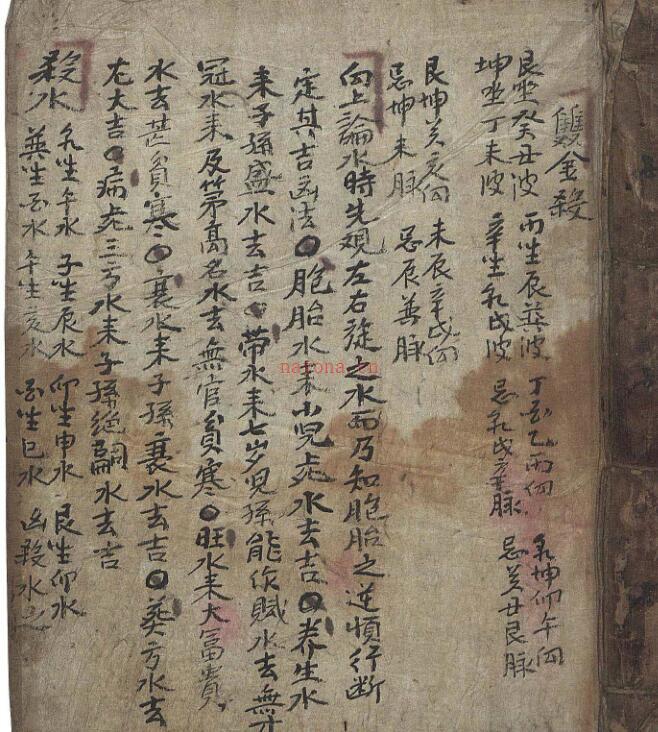 雙金殺
艮坐癸丑波 丙坐辰巽波 丁酉乙丙向 乾坤卯午向
坤坐丁未波 辛坐乾戌波 忌乾戌辛脉 忌癸丑艮脉
艮坤癸亥向 未辰辛戌向
忌坤未脉 忌辰巽脉
向上論水時先观左右旋之水而乃知胞胎之逆順行断
定其吉凶法〇胞胎水来小児死水去吉〇养生水
来子孫盛水去吉〇帶水来七岁児孫能作賦水去無才
冠水来及第高名水去無官貧寒〇旺水来大富貴
水去甚貧寒〇衰水来子孫衰水去吉〇葬方水去
尤大吉〇病死三方水来子孫絶嗣水去吉
殺水 乾坐午水 子坐辰水 卯坐申水 艮坐卯水
巽坐酉水 午坐亥水 酉坐巳水 凶殺水也
narona.cn